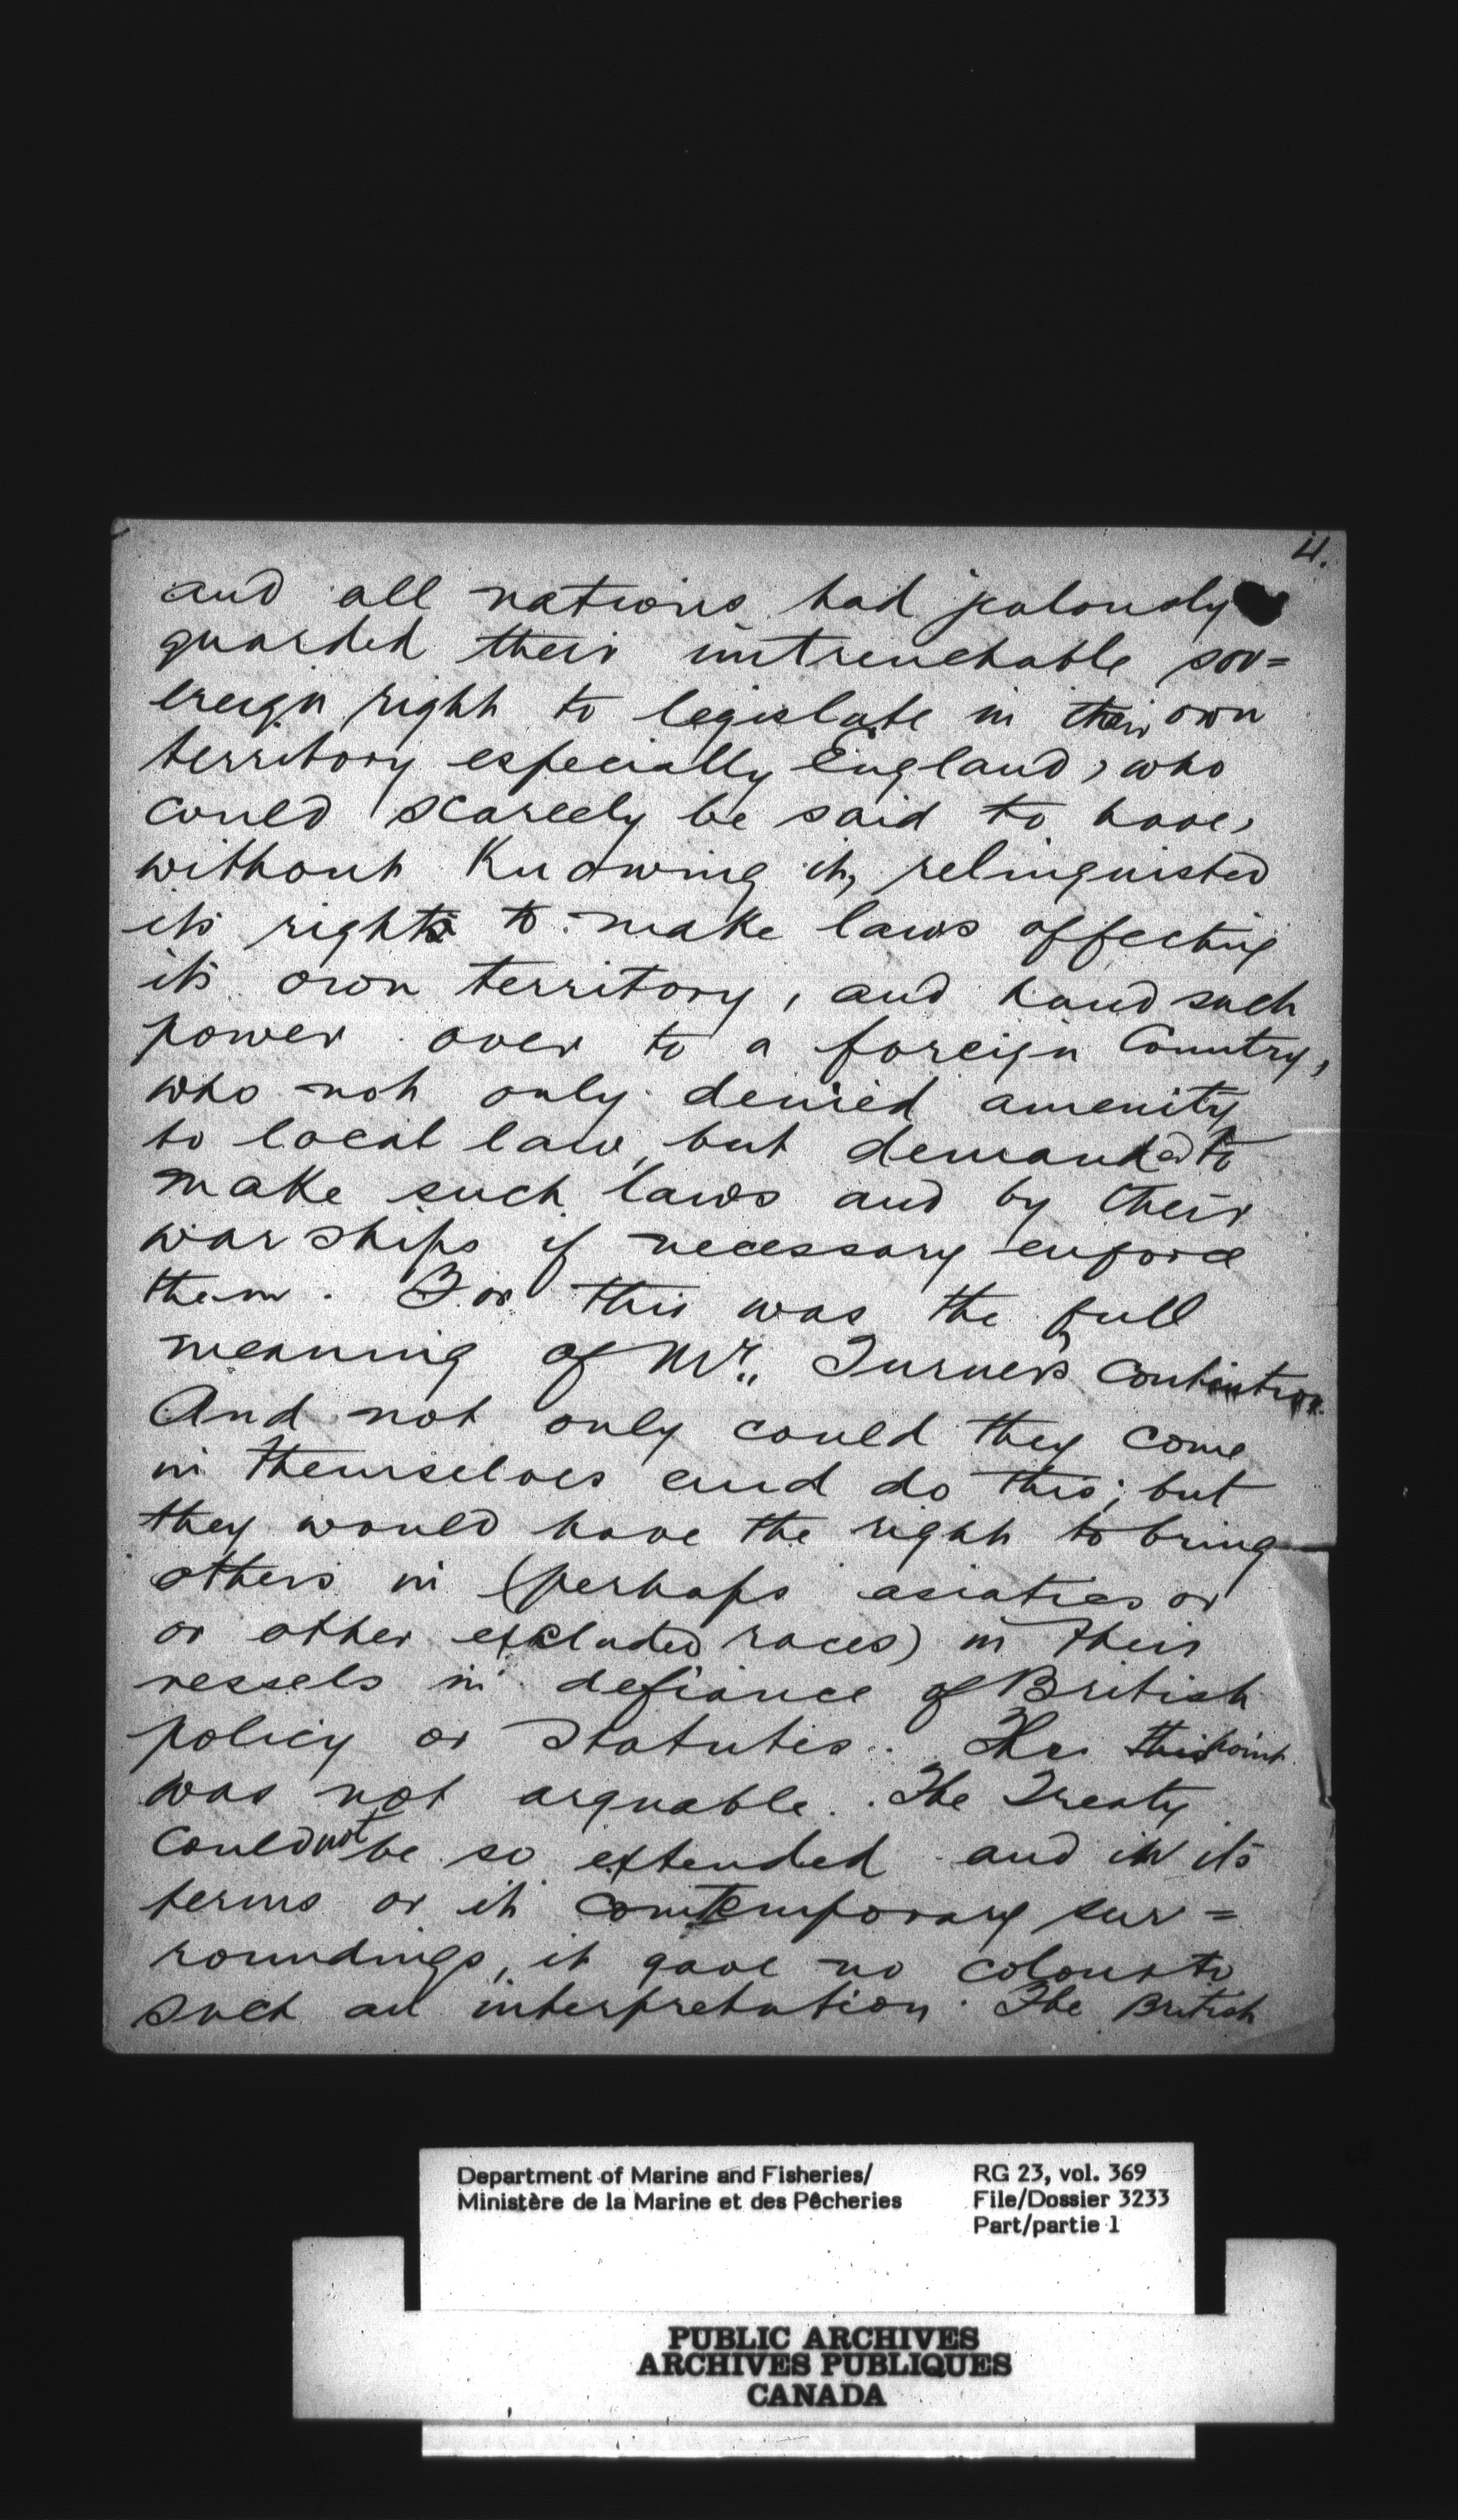 4.
and all nations had jealously
guarded their untrenchable sov=
ereign right to legislate in their own
territory especially England, who
could scarcely be said to have,
without Knowing it, relinquished
its rights to make laws affecting
its own territory, and hand such
power over to a foreign Country,
who not only denied amenity
to local law, but demanded to
make such laws and by their
war ships if necessary enforce
them. For this was the full
meaning of Mr. Turner's Contention.
And not only could they come
in themselves and do this; but
they would have the right to bring
others in (perhaps asiatics or
or other excluded races) in their
vessels in defiance of British
policy or Statutes. The this point
was not arguable. The Treaty
could not be so extended and in its
terms or its contemporary sur=
roundings, it gave no colour to
such an interpretation. The British
Department of Marine and Fisheries/
Ministère de la Marine et des Pêcheries
RG 23, vol. 369
File/Dossier 3233
Part/partie 1
PUBLIC ARCHIVES
ARCHIVES PUBLIQUES
CANADA